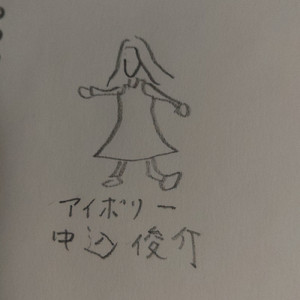 アイボリー
中込 俊介